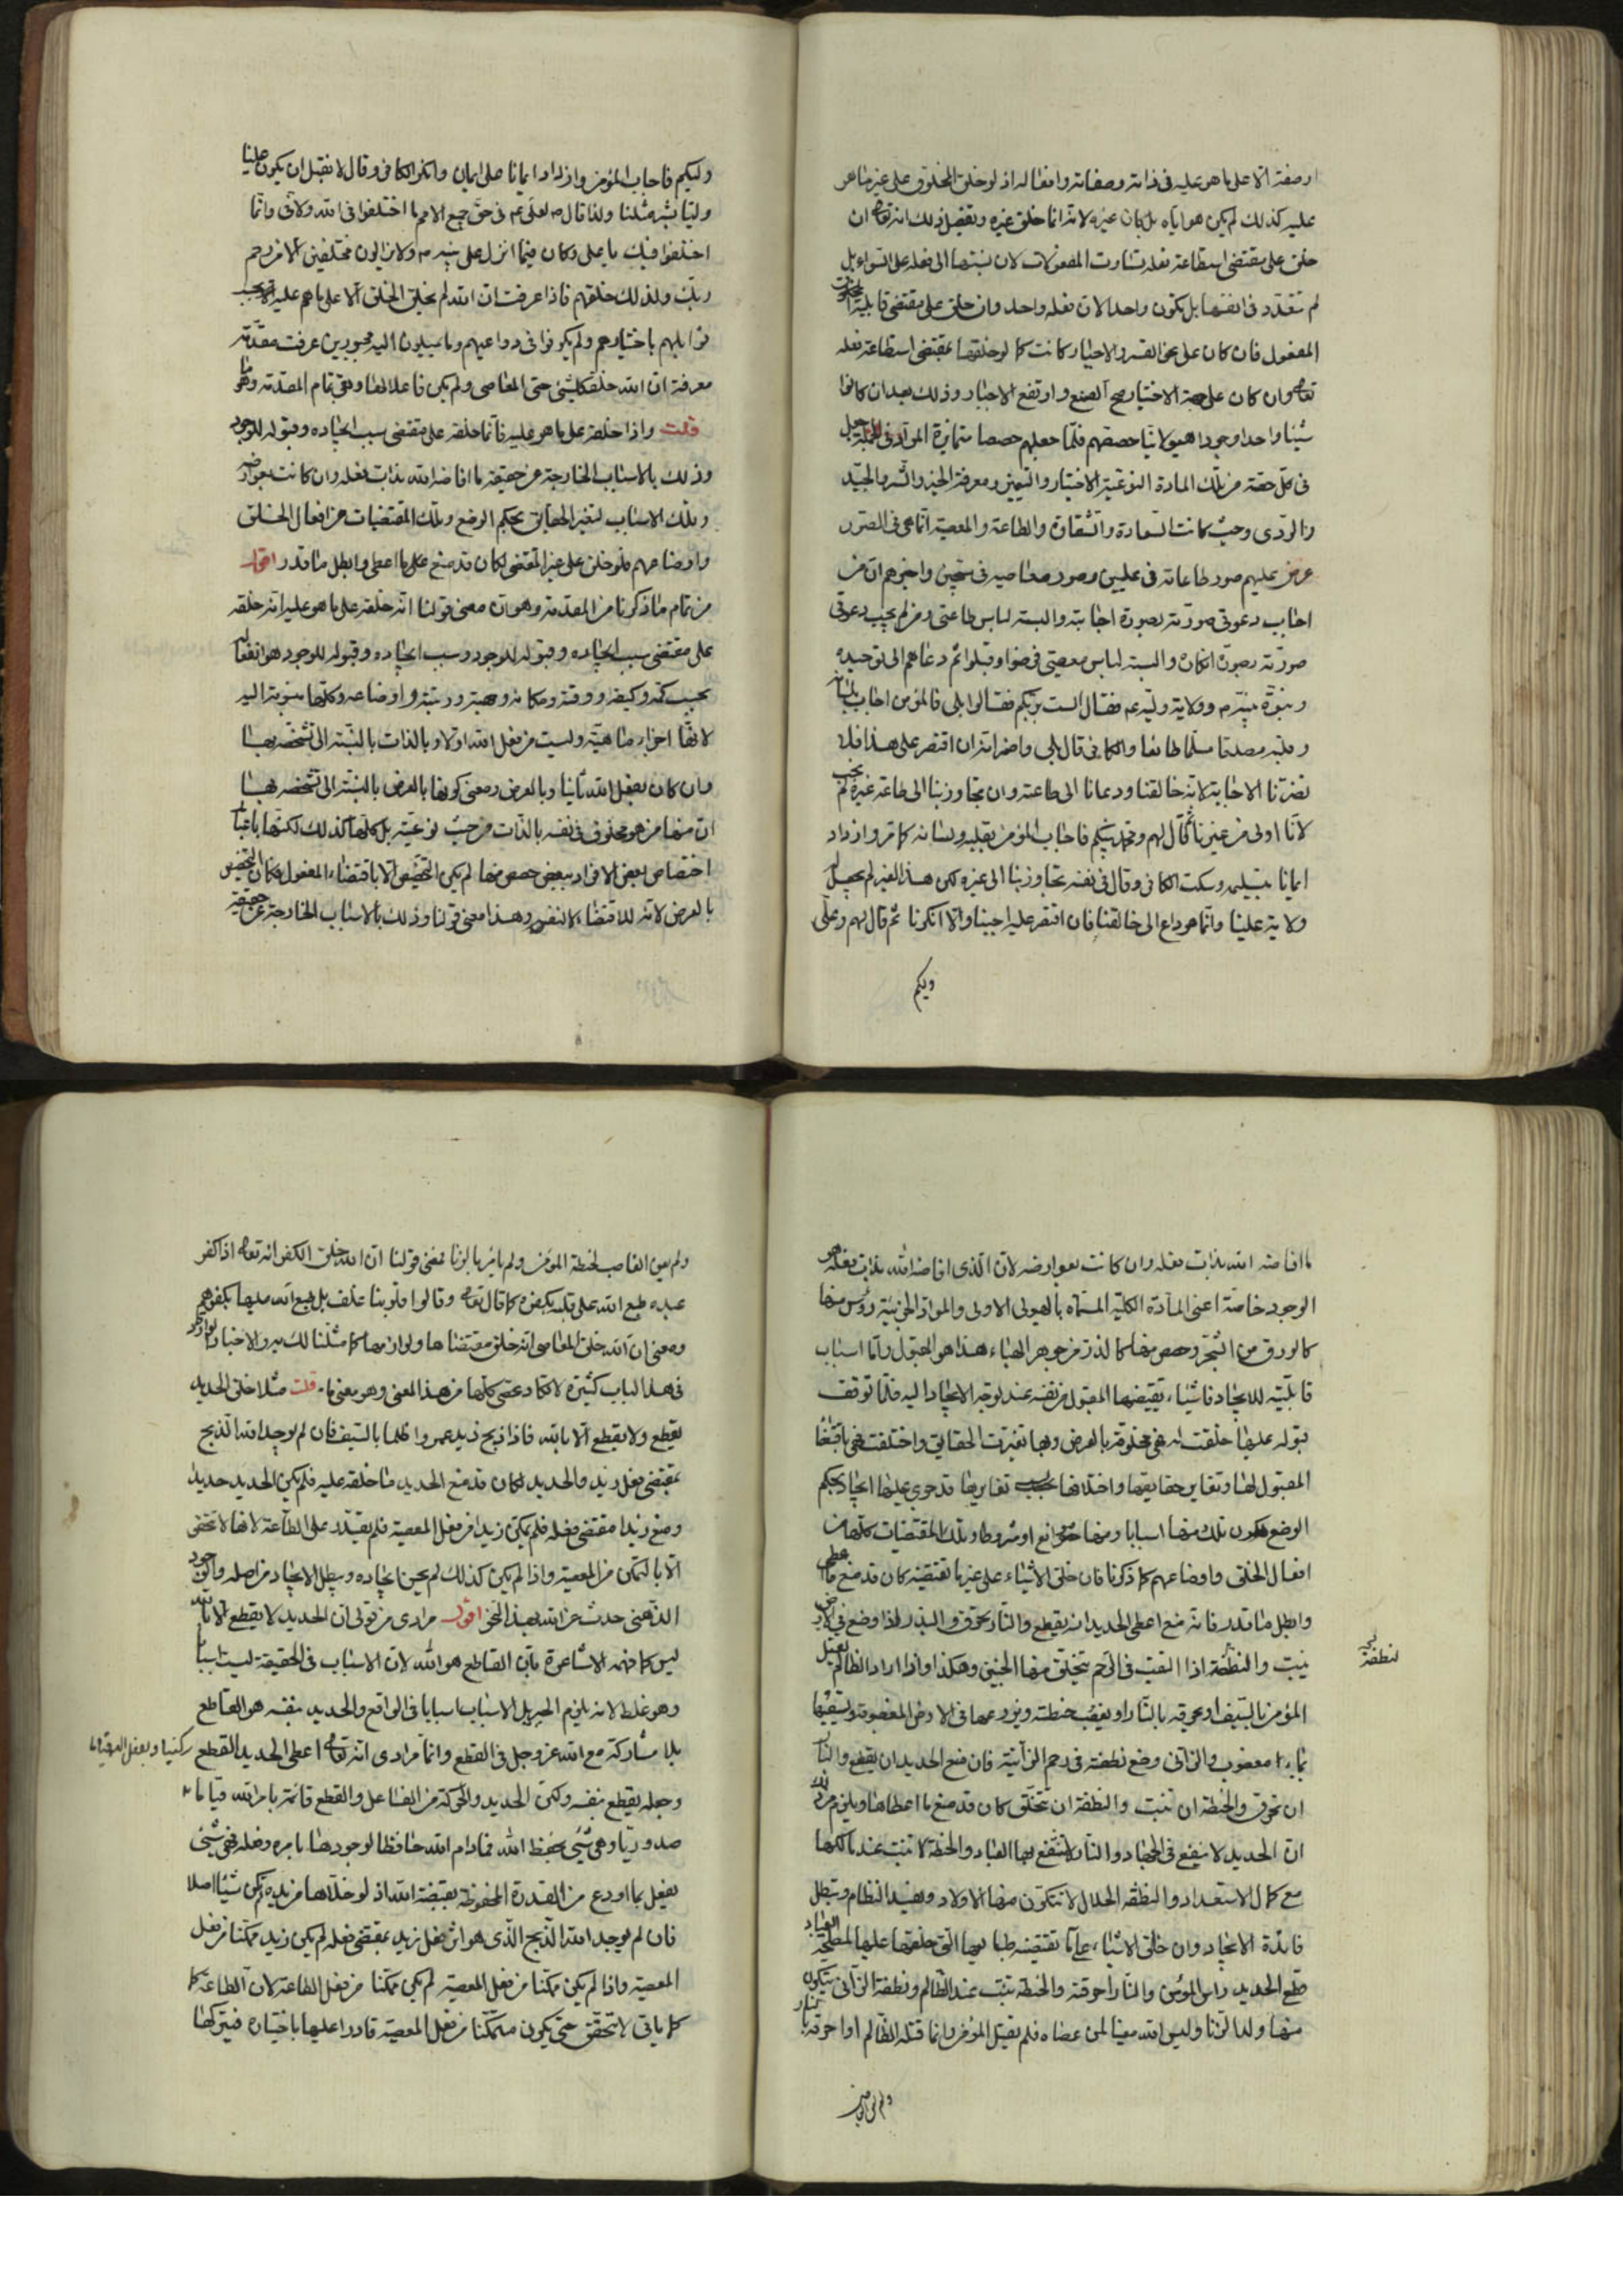 او صفة الا على ما هو عليه فى ذاته وصفاته وافعاله اذ لو خلق المخلوق على غير ما هو
عليه كذلك لم يكن هو اياه بل كان غيره لانه انما خلق غيره وتفصيل ذلك انه تعالى ان
خلق على مقتضى استطاعة فعله تساوت المفعولات لان نسبتها الى فعله على السواء بل
لم تتعدد فى انفسها بل يكون واحدا لان فعله واحد وان خلق على مقتضى قابلية
المفعول فان كان على نحو القسر والاجبار كانت كما لو خلقها بمقتضى استطاعة فعله
تعالى وان كان على جهة الاختيار صح الصنع وارتفع الاجبار وذلك بعد ان كانوا
شيئا واحدا وجودا هيولانيا حصصهم فلما جعلهم حصصا متمايزة جعل
فى كل حصة من تلك المادة النوعية الاختيار والتمييز ومعرفة الخير والشر والجيد
والردى وحيث كانت السعادة والشقاوة والطاعة والمعصية انما هى فى الصور
عرض عليهم صور طاعاته فى عليين وصور معاصيه فى سجين واخبرهم ان من
اجاب دعوتى صورته بصورة اجابته والبسته لباس طاعتى ومن لم يجب دعوتى
صورته بصورة انكاره والبسته لباس معصيتى فرضوا وقبلوا ثم دعاهم الى توحيده
ونبوة نبيه وولاية وليه فقال الست بربكم فقالوا بلى فالمؤمن اجاب بلسانه
وقلبه مصدقا مسلما طائعا والكافر قال بلى واضمر انه ان اقتصر على هذا فلا
تضرنا الاجابة لانه خالقنا ودعانا الى طاعته وان تجاوز بنا الى طاعة غيره لم نجب
لانا اولى من غيرنا ثم قال لهم ومحمد نبيكم فاجاب المؤمن بقلبه ولسانه كما مر وازداد
ايمانا بتسليمه وسكت الكافر وقال فى نفسه تجاوز بنا الى غيره لكن هذا الغير لم يجعل له
ولاية علينا وانما هو داع الى خالقنا فان اقتصر عليه اجبنا والا انكرنا ثم قال لهم وعلى
وليكم
وليكم فاجاب المؤمن وازداد ايمانا على ايمان وانكر الكافر وقال لا نقبل ان يكون علينا
وليا بشر مثلنا ولذا قال لعلى فى حق جميع الامم ما اختلفوا فى الله ولا فى وانما
اختلفوا فيك يا على وكان فيما انزل على نبيه ولا يزالون مختلفين الا من رحم
ربك ولذلك خلقهم فاذا عرفت ان الله لم يخلق الخلق الا على ما هم عليه
قوابلهم باختيارهم ولم يكونوا فى دواعيهم وما يميلون اليه مجبورين عرفت مقدمة
معرفة ان الله خلق كل شئ حتى المعاصى ولم يكن فاعلا لها وبقى تمام المقدمة وهو
قلت واذا خلقه على ما هو عليه فانما خلقه على مقتضى سبب ايجاده وقبوله للوجود
وذلك بالاسباب الخارجة عن حقيقة ما افاضه الله بذات فعله وان كانت بعوارضه
وتلك الاسباب لتغير الحقايق بحكم الوضع وتلك المقتضيات من افعال الخلق
واوضاعهم فلو خلق على غير المقتضى لكان قد منع عما اعطى وابطل ما قدر اقول
من تمام ما ذكرنا من المقدمة وهو ان معنى قولنا انه خلقه على ما هو عليه انه خلقه
على مقتضى سبب ايجاده وقبوله للوجود وسبب ايجاده وقبوله للوجود هو انفعاله
بحسب كمه وكيفه ووقته ومكانه وجهته ورتبته واوضاعه وكلها منسوبة اليه
لانها اجزاء ماهيته وليست من فعل الله اولا وبالذات بالنسبة الى تشخصه بها
وان كان بفعل الله ثانيا وبالعرض ومعنى كونها بالعرض بالنسبة الى تشخصه بها
ان منها من هو مخلوق فى نفسه بالذات من حيث نوعيته بل كلها كذلك لكنها باعتبار
اختصاص بعض الافراد ببعض حصص منها لم يكن التخصيص الا باقتضاء المفعول فكان التخصيص
بالعرض لانه للاقتضاء لا لنفسه وهذا معنى قولنا وذلك بالاسباب الخارجة عن حقيقة
ما افاضه الله بذات فعله وان كانت بعوارضه لان الذى افاضه الله بذات فعله هو
الوجود خاصة اعنى المادة الكلية المسماة بالهيولى الاولى والمواد الجزئية رؤس منها
كالورق من الشجر وحصص منها كالذرة من جوهر الهباء هذا هو المقبول واما اسباب
قابليته للايجاد فاشياء يقتضيها المقبول من نفسه عند توجه الايجاد اليه فلما توقف
قبوله عليها خلقت له فهى مخلوقة بالعرض وبها تغيرت الحقايق واختلفت فهى باقتضاء
المقبول لها وتغاير حقايقها واختلافها بحسب تغايرها قد جرى عليها ايجاد بحكم
الوضع تلك منها اسبابا ومنها موانع او شروطا وتلك المقتضيات كلها من
افعال الخلق واوضاعهم كما ذكرنا فان خلق الاشياء على غير ما تقتضيه كان قد منع ما اعطى
وابطل ما قدر فانه مع اعطى الحديد ان يقطع والنار تحرق والبذر اذا وضع فى الارض
ينبت والنطفة اذا القيت فى الرحم يتخلق منها الجنين وهكذا واذا اراد الظالم يقتل
المؤمن بالسيف او يحرقه بالنار او يغصب حنطته ويزرعها فى الارض المغصوبة ويسقيها
بماء مغصوب والزانى وضع نطفته فى رحم الزانية فان منع الحديد ان يقطع والنار
ان تحرق والحنطة ان تنبت والنطفة ان تتخلق كان قد منع ما اعطاها ويلزم من ذلك
ان الحديد لا ينفع فى الجهاد والنار لا ينتفع بها العباد والحنطة لا تنبت عند مالكها
مع كمال الاستعداد والنطفة الحلال لا تتكون منها الاولاد ويفسد النظام وتبطل
فائدة الايجاد وان خلق الاشياء على ما تقتضيه طبايعها التى خلقها عليها لمصلحة العباد
قطع الحديد راس المؤمن والنار احرقته والحنطة تنبت عند الظالم ونطفة الزانى يتكون
منها ولد الزنا وليس الله معينا لمن عصاه فلم يقتل المؤمن وانما قتله الظالم او احرقه بالنار
ولم يعن الغاصب
ولم يعن الغاصب لحنطة المؤمن ولم يامر بالزنا فمعنى قولنا ان الله خلق الكفر انه تعالى اذا كفر
عبده طبع الله على قلبه بكفره كما قال تعالى وقالوا قلوبنا غلف بل طبع الله عليها بكفرهم
ومعنى ان الله خلق المعاصى انه خلق مقتضاها ولوازمها كما مثلنا لك والاخبار
فى هذا الباب كثيرة لا تكاد تحصى كلها من هذا المعنى وهو معنى ما قلت مثلا خلق الحديد
يقطع ولا يقطع الا بالله فاذا ذبح زيد عمروا ظلما بالسيف فان لم يوجد الله الذبح
بمقتضى فعل زيد والحديد لكان قد منع الحديد ما خلقه عليه فلم يكن الحديد حديدا
ومنع زيدا مقتضى فعله فلم يمكن زيدا من فعل المعصية فلم يقتدر على الطاعة لانها لا تتحقق
الا بالتمكن من المعصية واذا لم يكن كذلك لم يحسن ايجاده ويبطل الايجاد من اصله والوجود
الذهنى حدث عن الله بهذا النحو اقول مرادى من قولى ان الحديد لا يقطع الا بالله
ليس كما فهمه الاشاعرة بان القاطع هو الله لان الاسباب فى الحقيقة ليست اسبابا
وهو غلط لانه يلزم الاسباب اسبابا فى الواقع والحديد بنفسه هو القاطع
بلا مشاركة مع الله عز وجل فى القطع وانما مرادى انه تعالى اعطى الحديد القطع
وجعله يقطع بنفسه ولكن الحديد والحركة من الفاعل والقطع قائمة بامر الله قياما
صدوريا وهى شئ بحفظ الله فما دام الله حافظا لوجودها بامره وفعله فهى شئ
يفعل بما اودع من القدرة المحفوظة بقبضة الله اذ لو خلاها من يده لم تكن شيئا اصلا
فان لم يوجد الله الذبح الذى هو اثر فعل زيد بمقتضى فعله لم يكن زيد متمكنا من فعل
المعصية واذا لم يكن متمكنا من فعل المعصية لم يكن متمكنا من فعل الطاعة لان الطاعة كما
كما ياتى لا تتحقق حتى يكون متمكنا من فعل المعصية قادرا عليها باختياره فيتركها